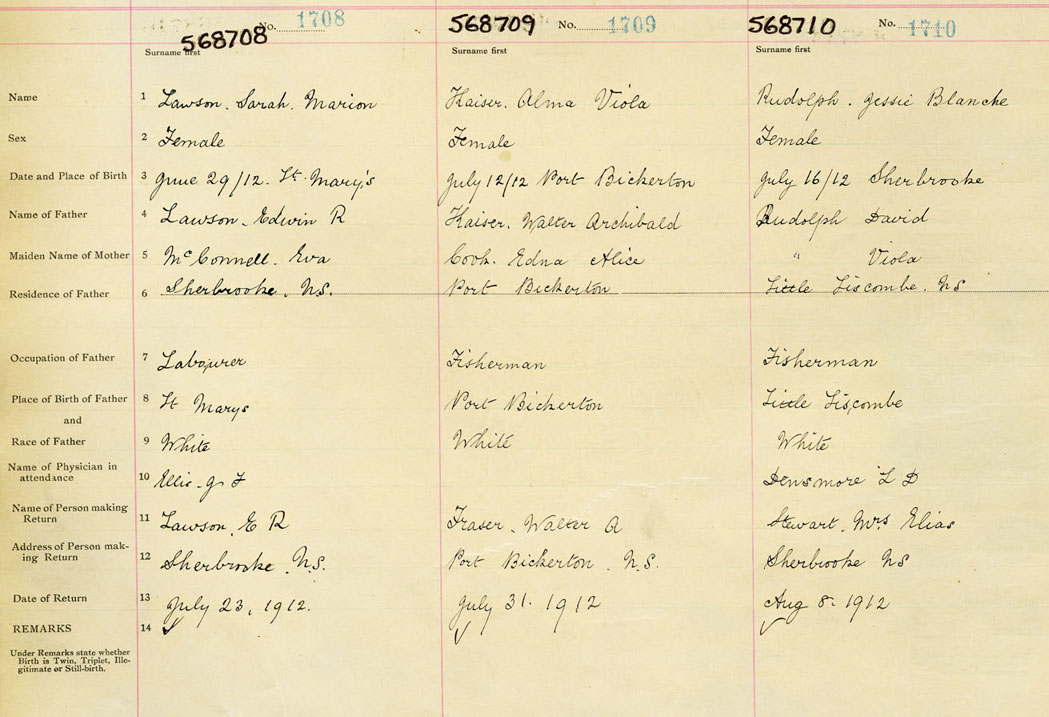 568708 No. 1708 568709 No. 1709 568710 No. 1710
Surname first Surname first Surname first
Name 1 Lawson. Sarah. Marion Kaiser. Alma Viola Rudolph. Jessie Blanche
Sex 2 Female Female Female
Date and Place of Birth 3 June 29/12. St. Mary's July 12/12 Port Bickerton July 16/12 Sherbrooke
Name of Father 4 Lawson. Edwin R Kaiser. Walter Archibald Rudolph David
Maiden Name of Mother 5 McConnell. Eva Cook. Edna Alice " Viola
Residence of Father 6 Sherbrooke. N.S. Port Bickerton Little Liscombe. NS
Occupation of Father 7 Labourer Fisherman Fisherman
Place of Birth of Father 8 St Marys Port Bickerton Little Liscombe
and
Race of Father 9 White White White
Name of Physician in
attendance 10 Ellis. J F Densmore L D
Name of Person making
Return 11 Lawson. E R Fraser. Walter A Stewart. Mrs Elias
Address of Person mak-
ing Return 12 Sherbrooke N.S. Port Bickerton. N.S. Sherbrooke NS
Date of Return 13 July 23, 1912. July 31. 1912 Aug 8. 1912
REMARKS 14 ✓ ✓ ✓
Under Remarks state whether
Birth is Twin, Triplet, Ille-
gitimate or Still-birth.